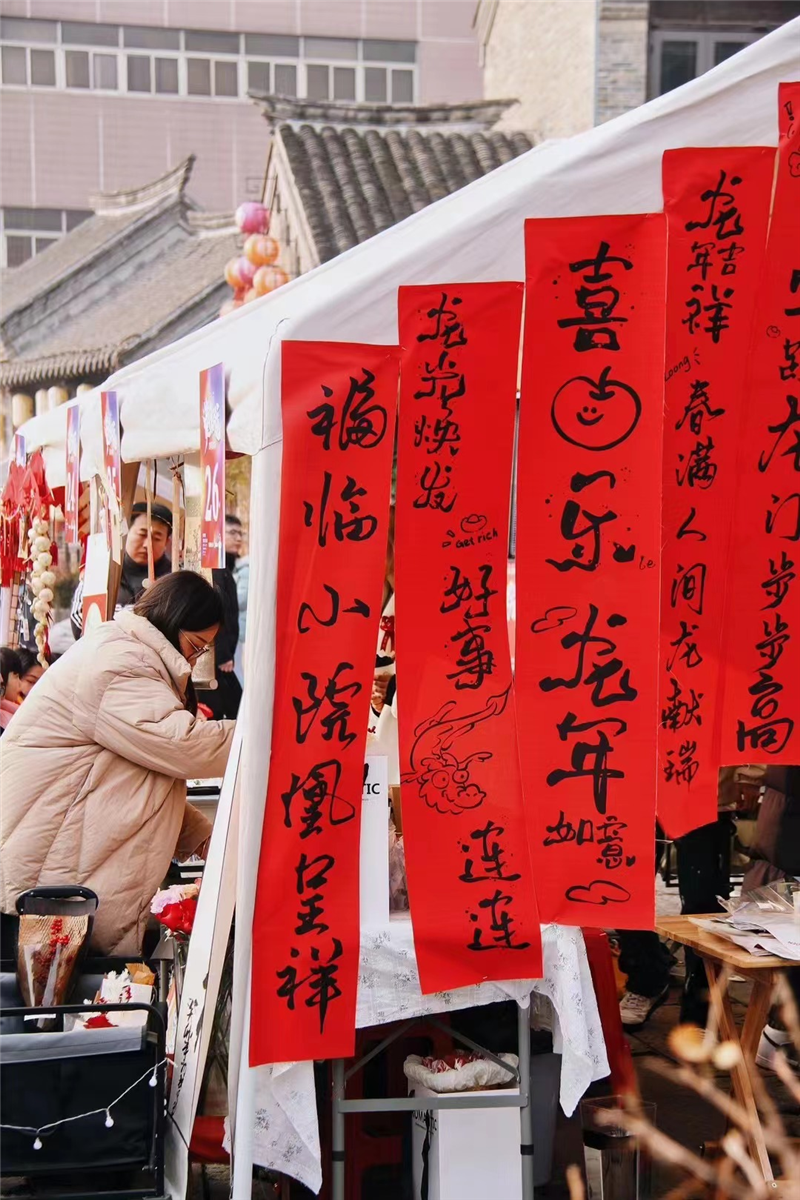 福临小院凰呈祥
龙光焕发
Get rich
好事
连连
喜
乐
le
龙年
如意
龙年吉祥
Loong
春满人间龙献瑞
龙门步步高
26
TIC